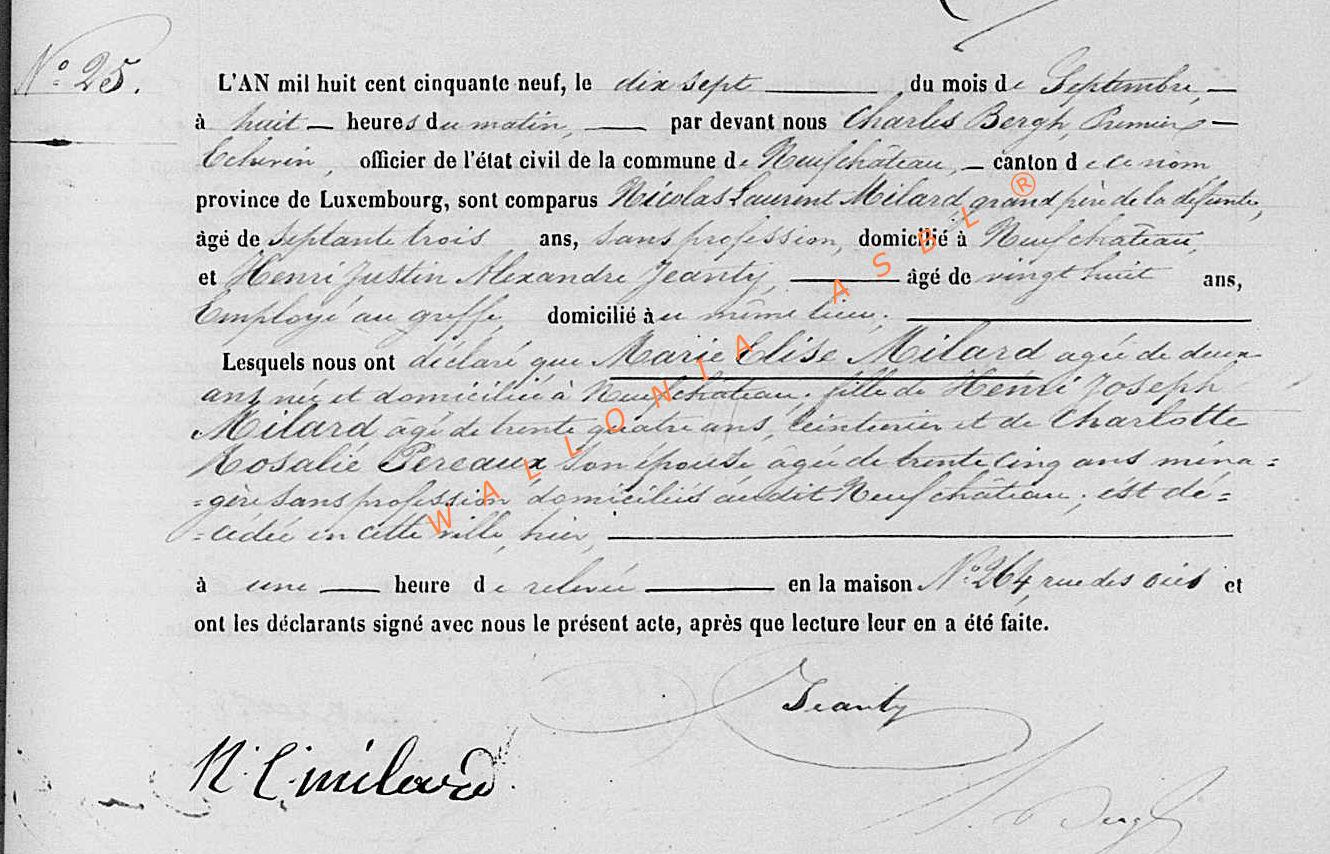 N° 25.
L'AN mil huit cent cinquante neuf, le dix sept du mois de Septembre,
à huit heures du matin, par devant nous Charles Bergh, Premier
Echevin, officier de l'état civil de la commune de Neufchâteau, canton de ce nom
province de Luxembourg, sont comparus Nicolas Laurent Milard, grand père de la défunte,
âgé de septante trois ans, sans profession, domicilié à Neufchâteau,
et Henri Justin Alexandre Jeanty, âgé de vingt huit ans,
Employé au greffe, domicilié au même lieu;
Lesquels nous ont déclaré que Marie Elise Milard agée de deux
ans, née et domiciliée à Neufchâteau, fille de Henri Joseph
Milard âgé de trente quatre ans, teinturier et de Charlotte
Rosalie Pereaux son épouse âgée de trente cinq ans ména=
=gère sans profession domiciliés audit Neufchâteau; est dé=
=cédée en cette ville, hier,
à une heure de relevée en la maison N° 264, rue des oies et
ont les déclarants signé avec nous le présent acte, après que lecture leur en a été faite.
Jeanty
N. L. milard
Bergh
WALLONIA ASBL ®